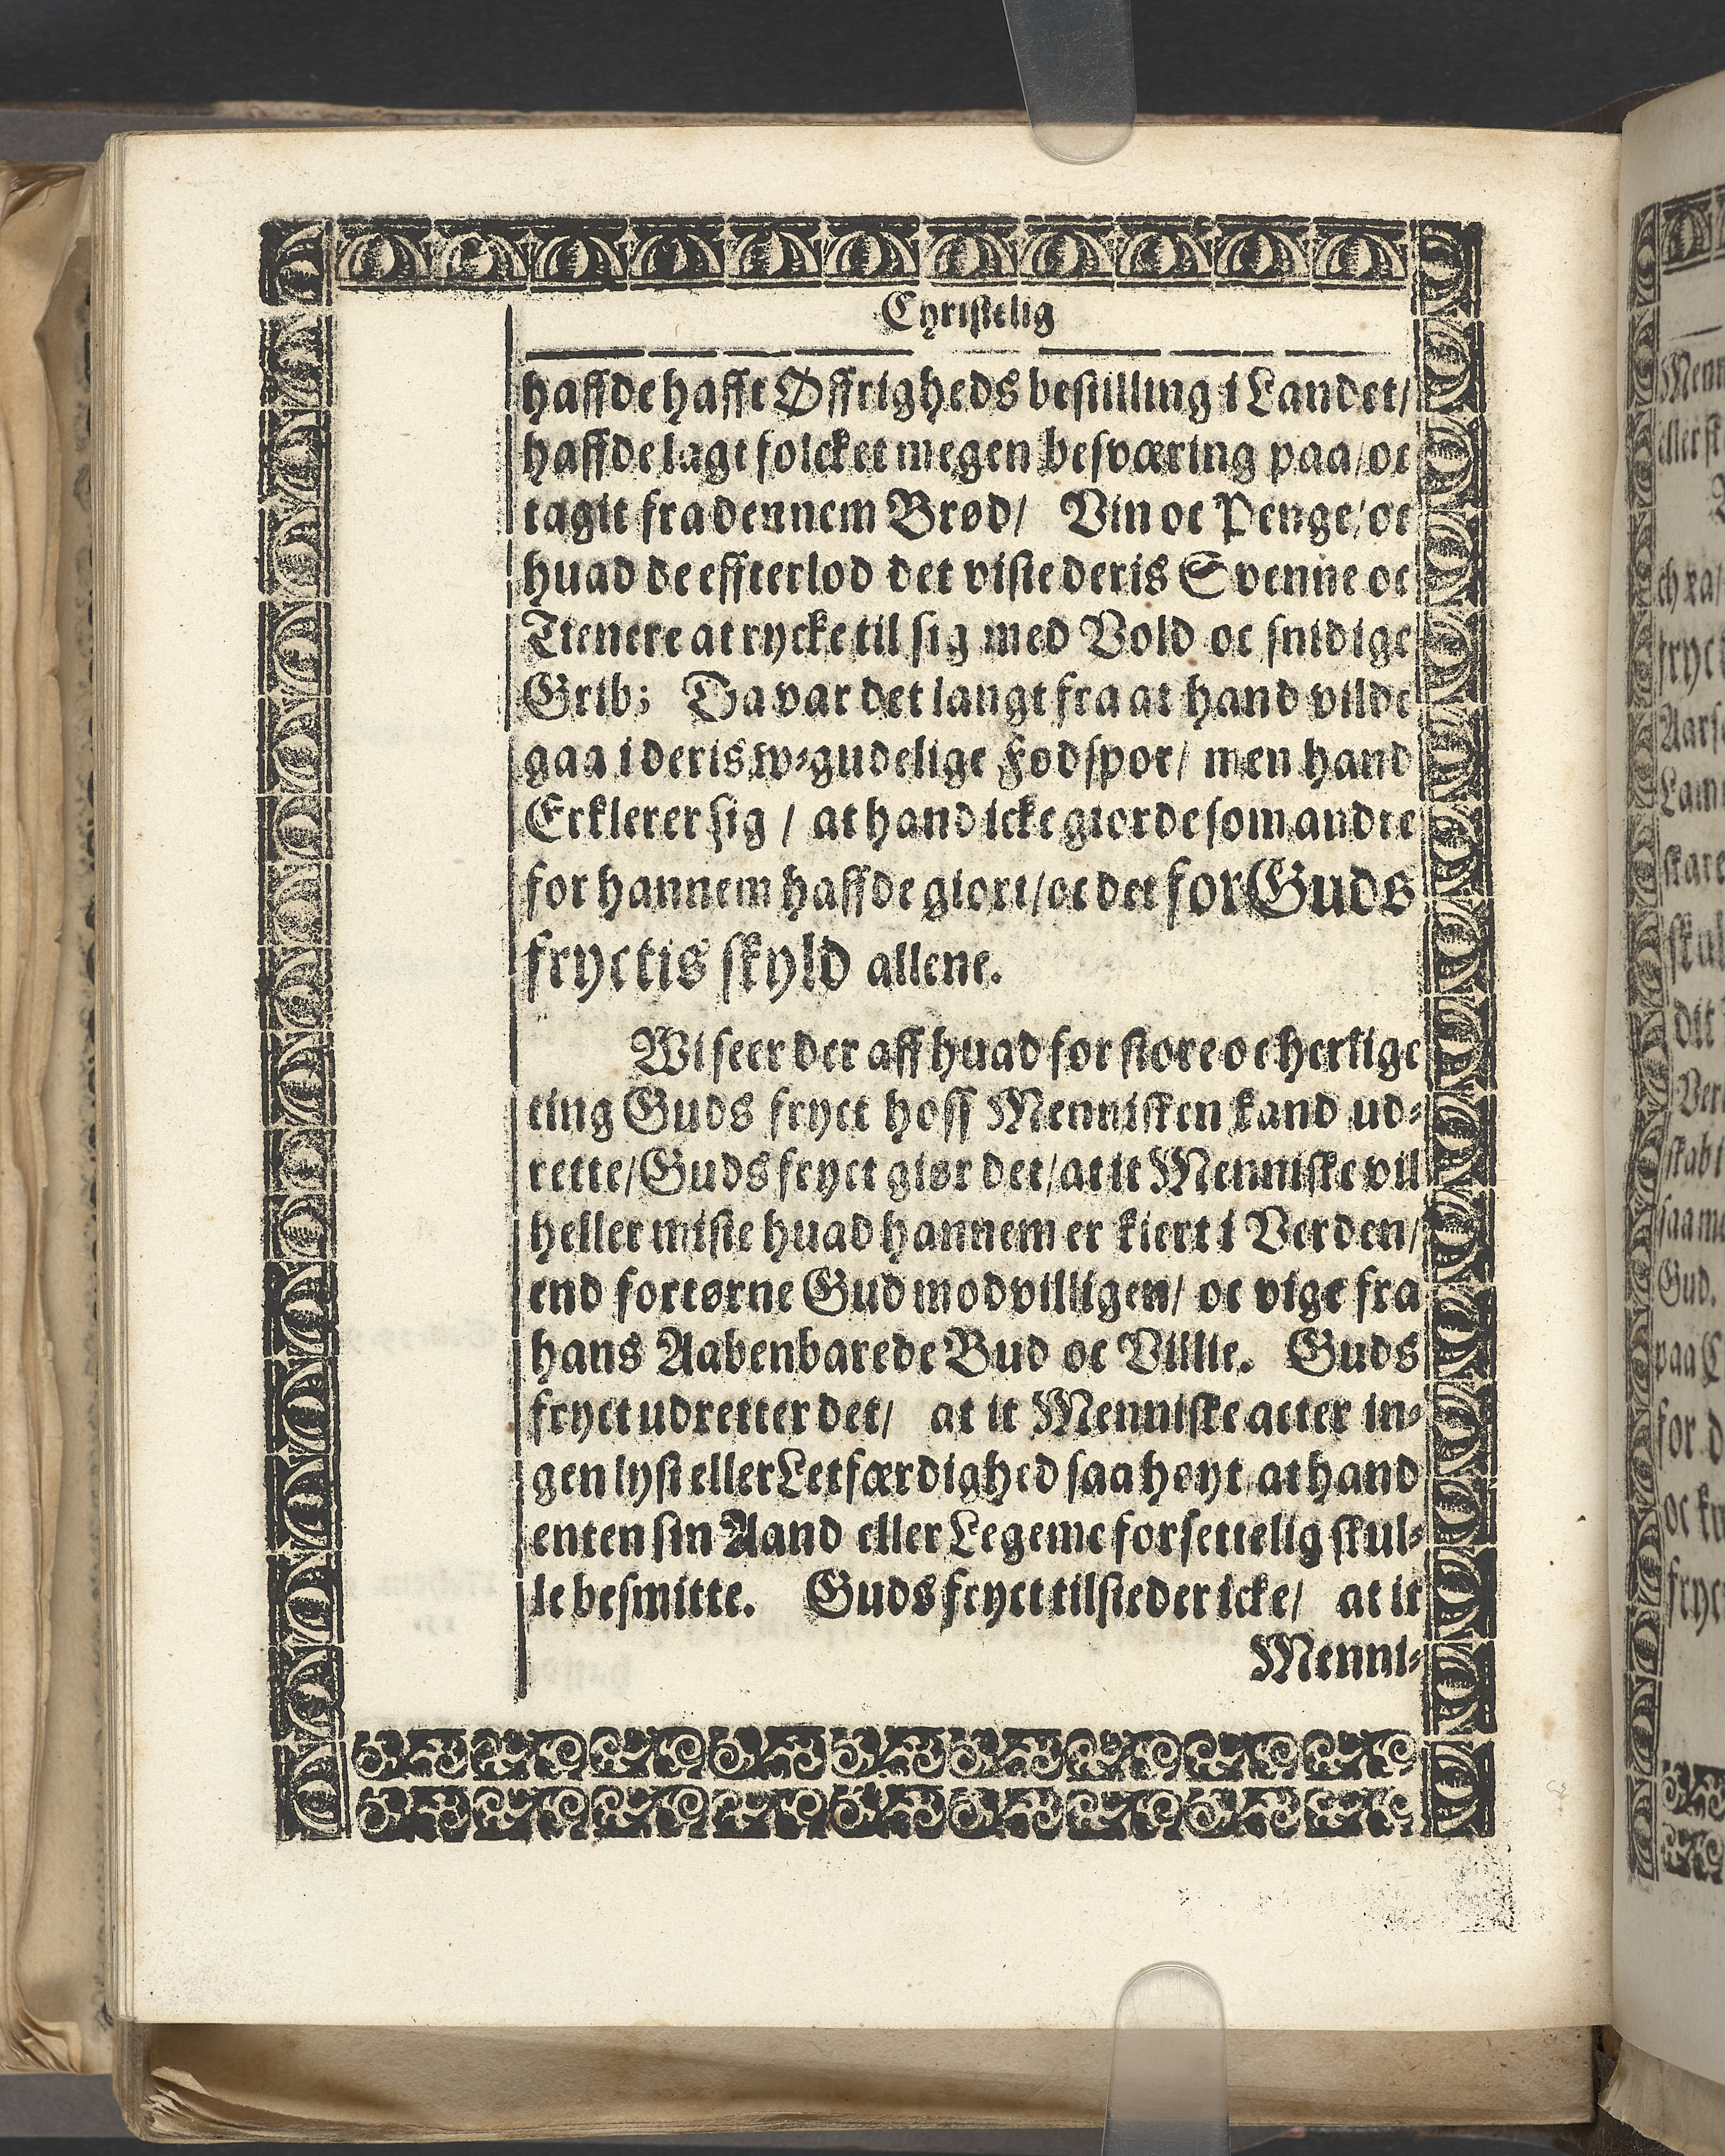 Christelig
haffde hafft Øffrigheds bestilling i Landet/
haffde lagt folcket megen besværing paa/ oc
tagit fra dennem Brød/ Vin oc Penge/ oc
huad de effterlod det viste deris Svenne oc
Tienere at rycke til sig med Vold oc snidige
Grib; Da var det langt fra at hand vilde
gaa i deris w-gudelige Fodspor/ men hand
Erklerer sig / at hand icke giorde som andre
for hannem haffde giort/ oc det for Guds
fryctis skyld allene.
Wi seer der aff huad for store oc herlige
ting Guds fryct hoss Mennisken kand ud-
rette/ Guds fryct giør det/ at it Menniske vil
heller miste huad hannem er kiert i Verden/
end fortørne Gud modvilligen/ oc vige fra
hans Aabenbarede Bud oc Villie. Guds
fryct udretter det/ at it Menniske acter in-
gen lyst eller Letfærdighed saa høyt at hand
enten sin Aand eller Legeme forsettelig skul-
le besmitte. Guds fryct tilsteder icke/ at it
Menni-